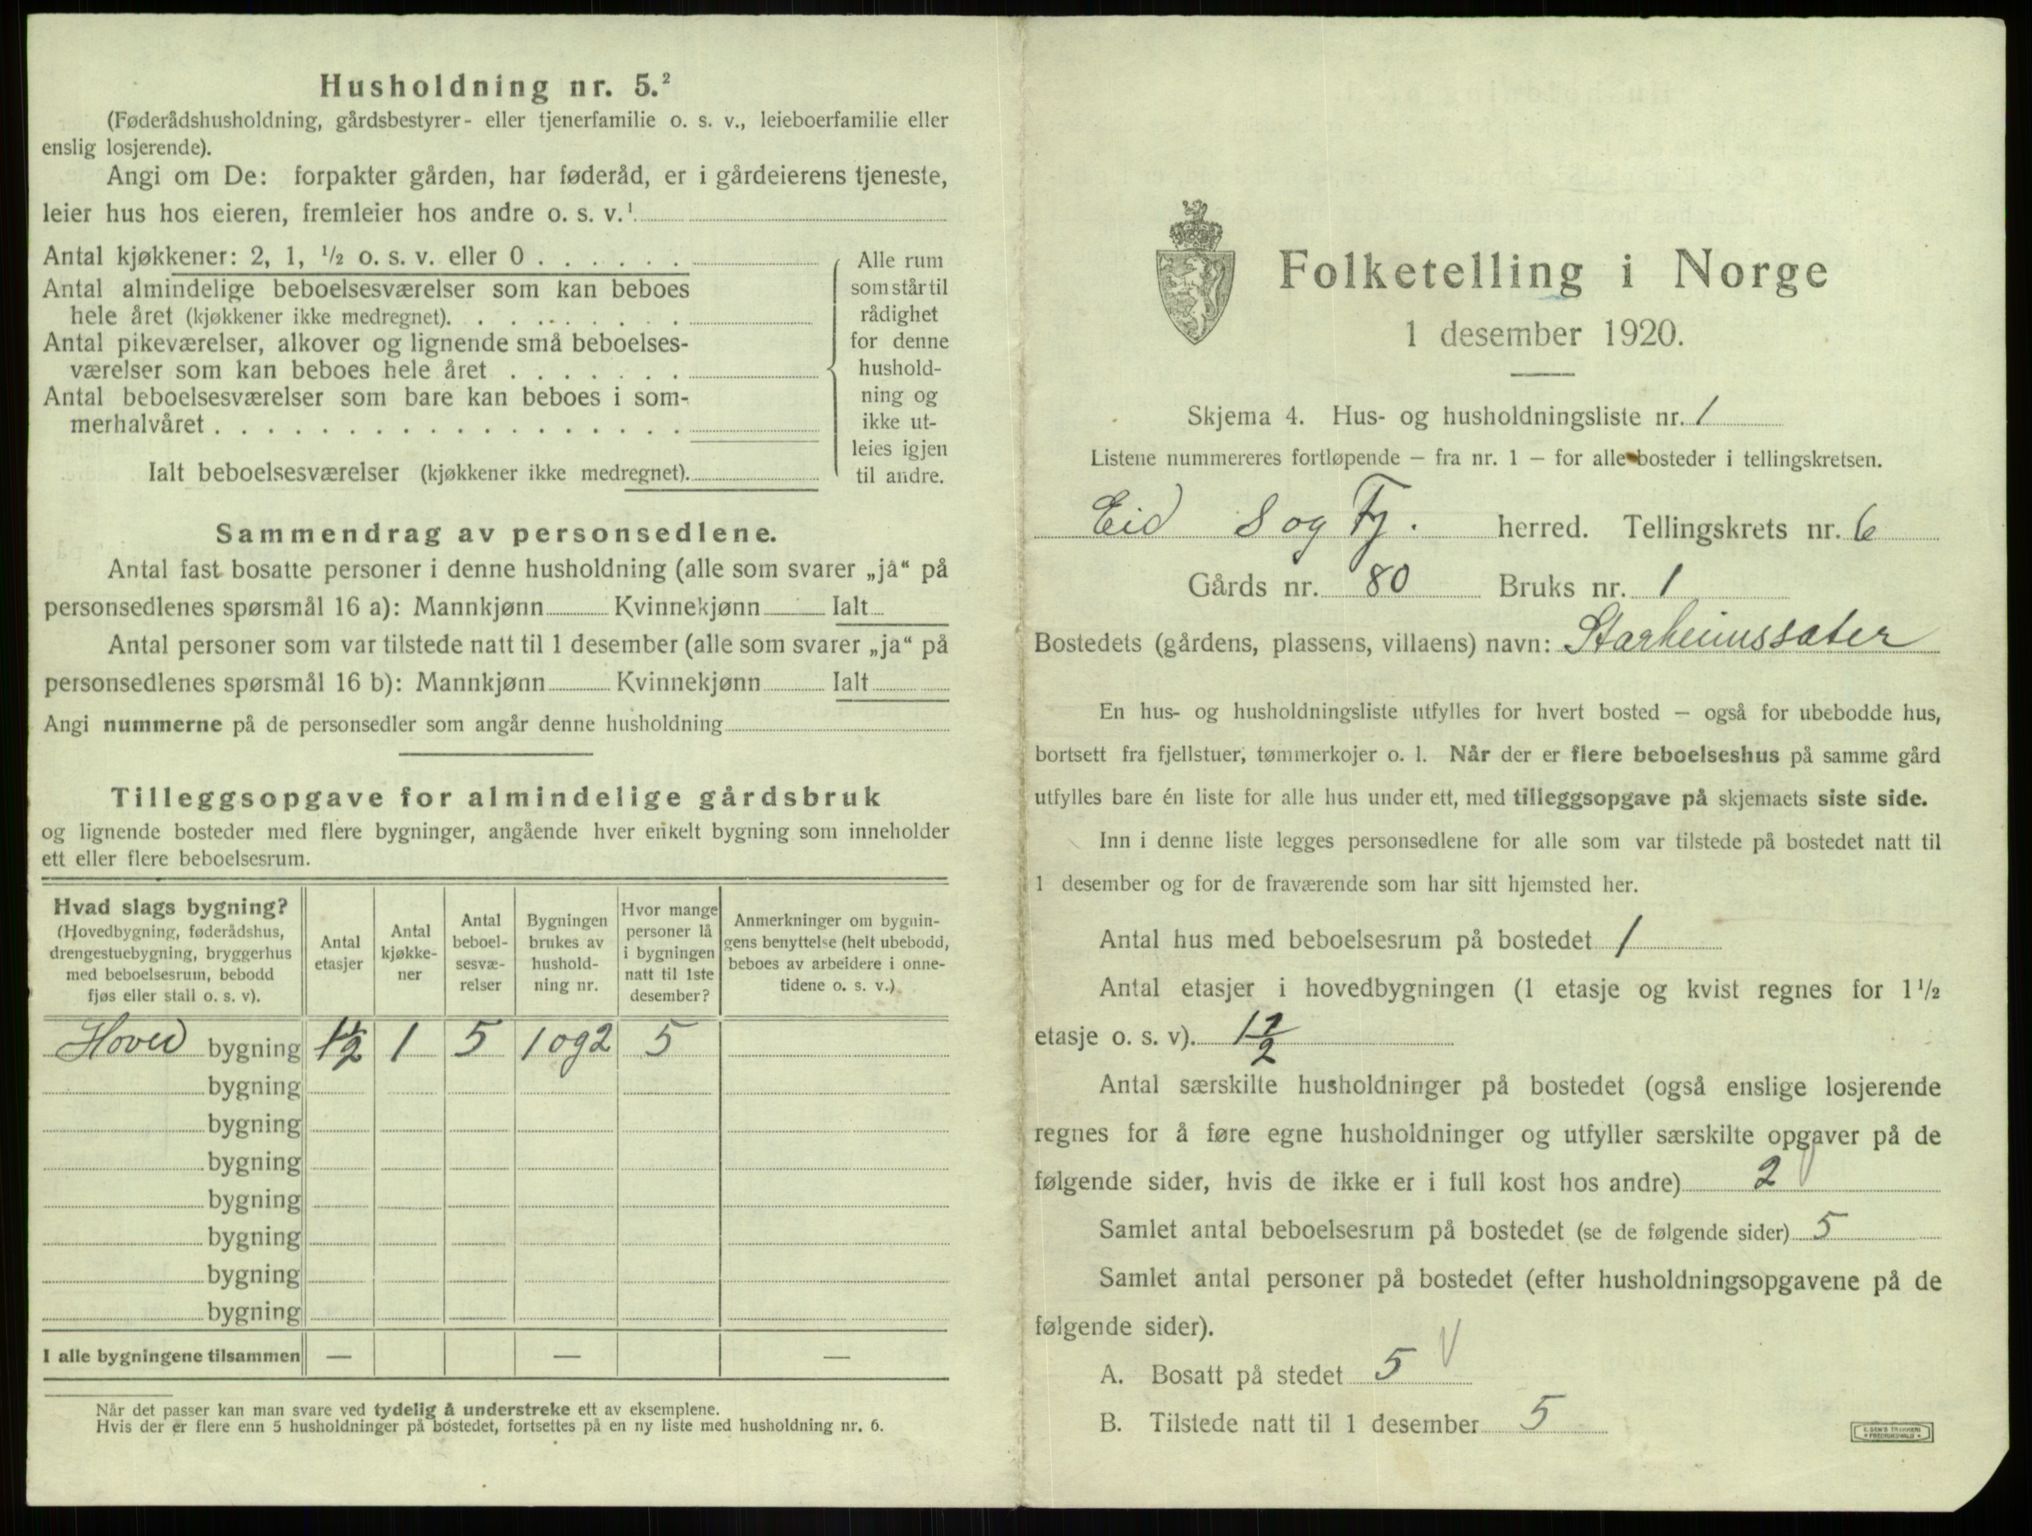 Husholdning nr. 5.²
(Føderådshusholdning, gårdsbestyrer- eller tjenerfamilie o. s. v., leieboerfamilie eller
enslig losjerende).
Angi om De: forpakter gården, har føderåd, er i gårdeierens tjeneste,
leier hus hos eieren, fremleier hos andre o. s. v.¹
Antal kjøkkener: 2, 1, ½ o. s. v. eller 0 . . . . . .
Antal almindelige beboelsesværelser som kan beboes
hele året (kjøkkener ikke medregnet). . . . . . . . .
Antal pikeværelser, alkover og lignende små beboelses-
værelser som kan beboes hele året . . . . . . .
Antal beboelsesværelser som bare kan beboes i som-
merhalvåret . . . . . . . . . . . . . . . . . .
Ialt beboelsesværelser (kjøkkener ikke medregnet).
Alle rum
som står til
rådighet
for denne
hushold-
ning og
ikke ut-
leies igjen
til andre.
Sammendrag av personsedlene.
Antal fast bosatte personer i denne husholdning (alle som svarer „ja“ på
personsedlenes spørsmål 16 a): Mannkjønn Kvinnekjønn Ialt
Antal personer som var tilstede natt til 1 desember (alle som svarer „ja“ på
personsedlenes spørsmål 16 b): Mannkjønn Kvinnekjønn Ialt
Angi nummerne på de personsedler som angår denne husholdning
Tilleggsopgave for almindelige gårdsbruk
og lignende bosteder med flere bygninger, angående hver enkelt bygning som inneholder
ett eller flere beboelsesrum.
Hvad slags bygning?
(Hovedbygning, føderådshus,
drengestuebygning, bryggerhus
med beboelsesrum, bebodd
fjøs eller stall o. s. v).
Antal
etasjer
Antal
kjøkke-
ner
Antal
beboel-
sesvæ-
relser
Bygningen
brukes av
hushold-
ning nr.
Hvor mange
personer lå
i bygningen
natt til 1ste
desember?
Anmerkninger om bygnin-
gens benyttelse (helt ubebodd,
beboes av arbeidere i onne-
tidene o. s. v.)
Hoved bygning 1½ 1 5 1 og 2 5
bygning
bygning
bygning
bygning
bygning
bygning
bygning
I alle bygningene tilsammen — — —
Når det passer kan man svare ved tydelig å understreke ett av eksemplene.
Hvis der er flere enn 5 husholdninger på bostedet, fortsettes på en ny liste med husholdning nr. 6.
Folketelling i Norge
1 desember 1920.
Skjema 4. Hus- og husholdningsliste nr. 1
Listene nummereres fortløpende – fra nr. 1 – for alle bosteder i tellingskretsen.
Eid S og Fj. herred. Tellingskrets nr. 6
Gårds nr. 80 Bruks nr. 1
Bostedets (gårdens, plassens, villaens) navn: Starheimssæter
En hus- og husholdningsliste utfylles for hvert bosted – også for ubebodde hus,
bortsett fra fjellstuer, tømmerkojer o. l. Når der er flere beboelseshus på samme gård
utfylles bare én liste for alle hus under ett, med tilleggsopgave på skjemaets siste side.
Inn i denne liste legges personsedlene for alle som var tilstede på bostedet natt til
1 desember og for de fraværende som har sitt hjemsted her.
Antal hus med beboelsesrum på bostedet 1
Antal etasjer i hovedbygningen (1 etasje og kvist regnes for 1½
etasje o. s. v). 1½
Antal særskilte husholdninger på bostedet (også enslige losjerende
regnes for å føre egne husholdninger og utfyller særskilte opgaver på de
følgende sider, hvis de ikke er i full kost hos andre) 2
Samlet antal beboelsesrum på bostedet (se de følgende sider) 5
Samlet antal personer på bostedet (efter husholdningsopgavene på de
følgende sider).
A. Bosatt på stedet 5
B. Tilstede natt til 1 desember 5